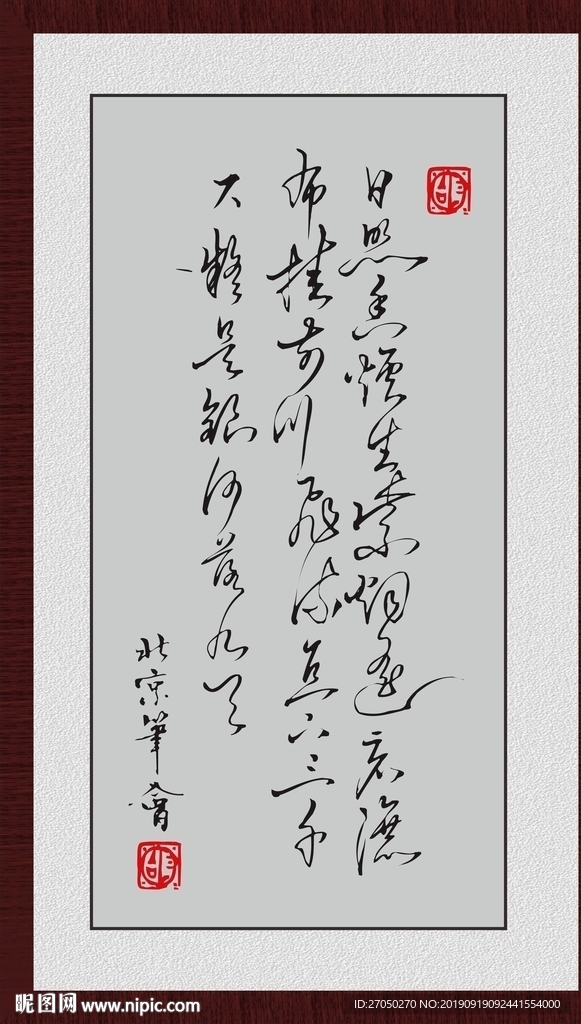 日照香炉生紫烟遥看瀑
布挂前川飛流直下三千
尺疑是銀河落九天
北京筆會
昵图网 www.nipic.com
ID:27050270 NO:20190919092441554000